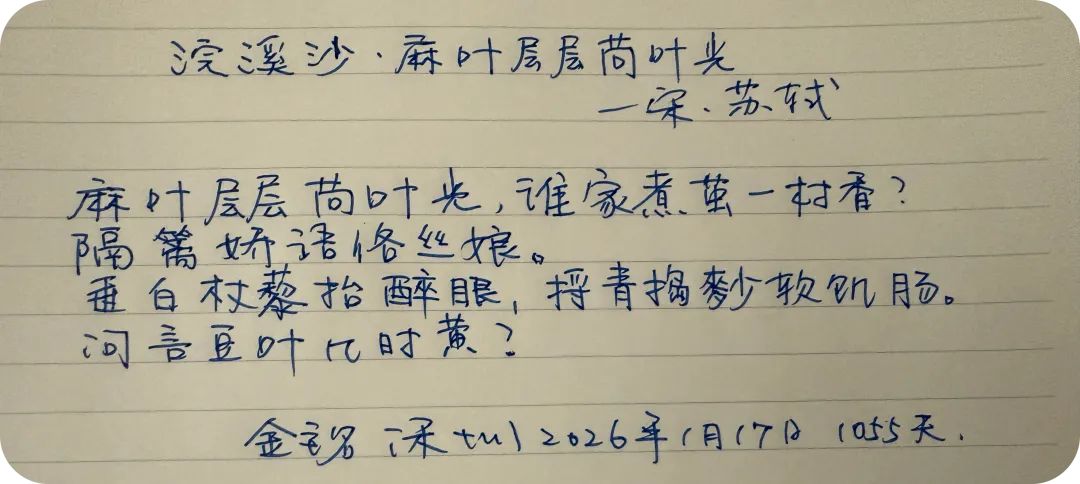 浣溪沙·麻叶层层苘叶光
—宋·苏轼
麻叶层层苘叶光,谁家煮茧一村香?
隔篱娇语络丝娘。
垂白杖藜抬醉眼,捋青捣麨软饥肠。
问言豆叶几时黄?
金 深圳2026年1月17日 1055天.